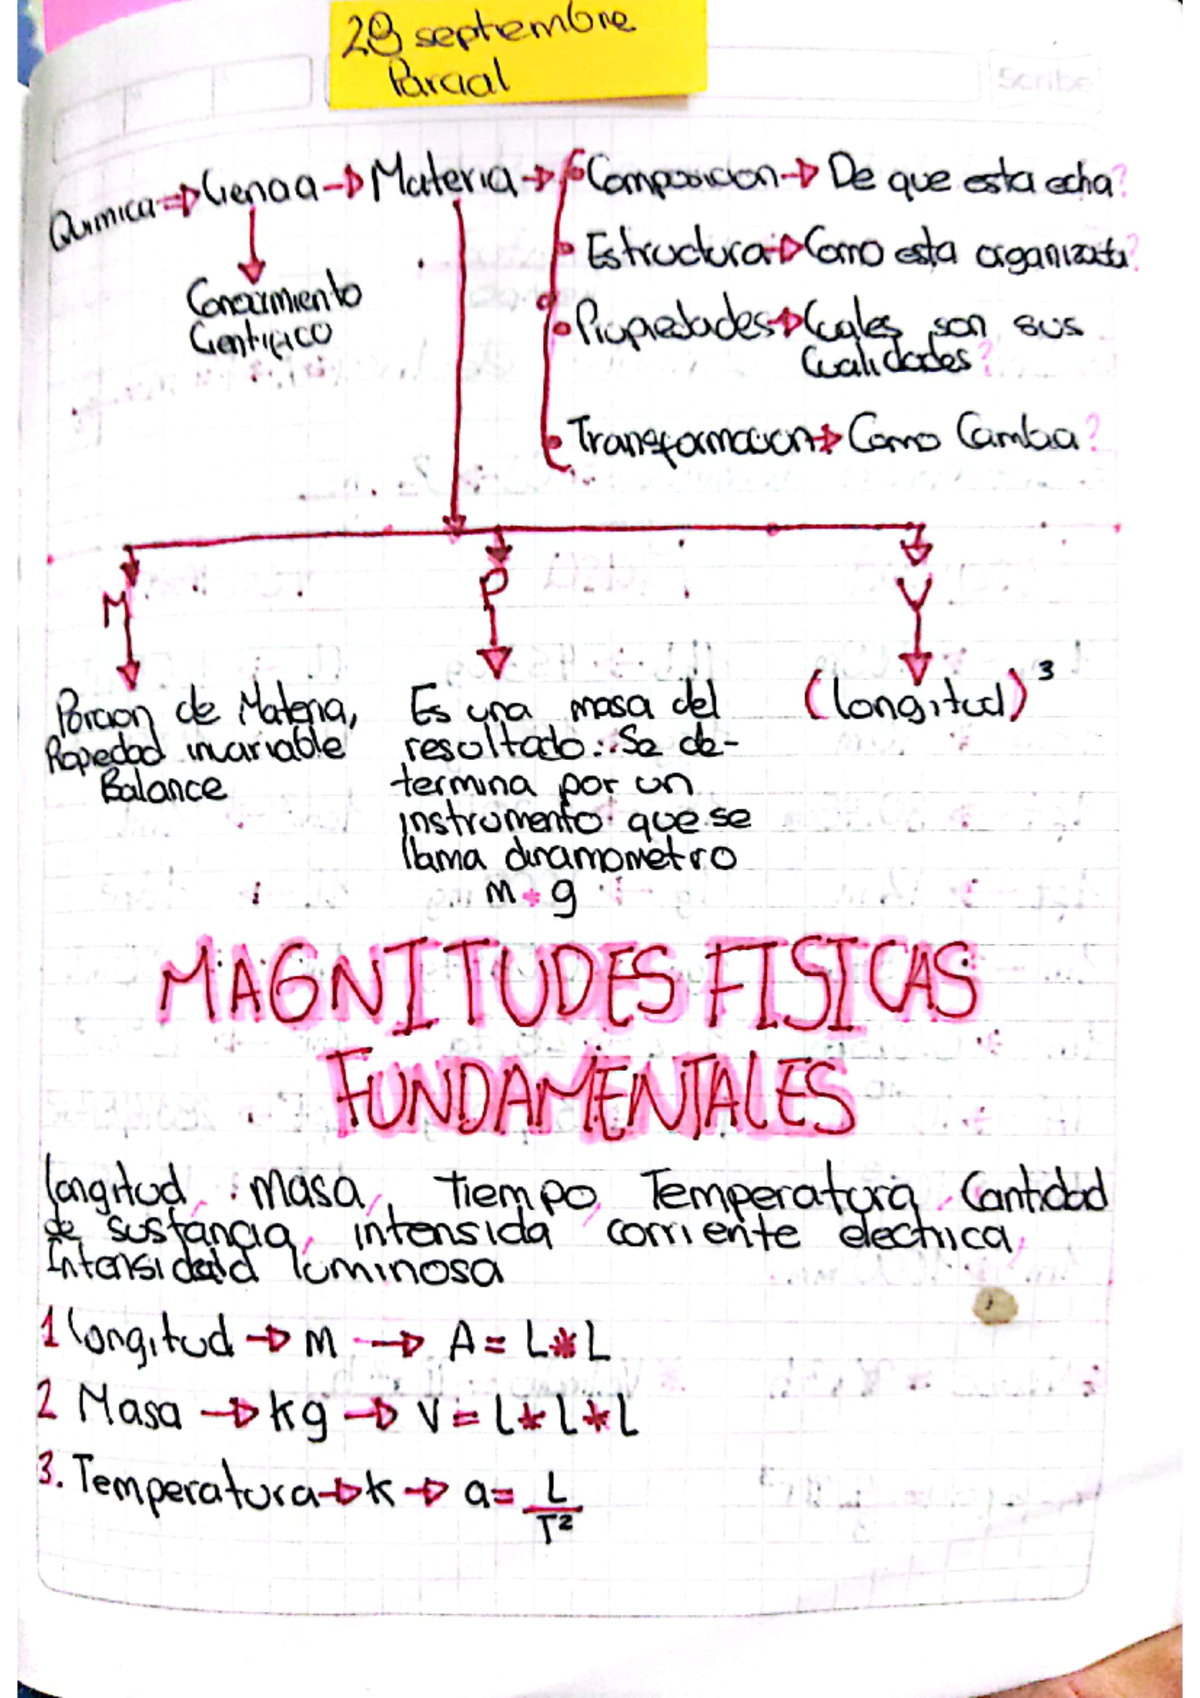 28 septiembre
Parcial
Scribe
Quimica Ciencia Materia Composicion De que esta echa?
Estructura Como esta organizada?
Conocimiento
Cientifico
Propiedades Cuales son sus
cualidades?
Transformacion Como Cambia?
M P V
Porcion de Materia,
Propiedad invariable
Balance
Es una masa del
resultado: Se de-
termina por un
instrumento que se
llama dinamometro
m * g
(longitud)³
MAGNITUDES FISICAS
FUNDAMENTALES
longitud, masa, tiempo, Temperatura, Cantidad
de sustancia, intensida corriente electrica,
Intensidad luminosa
1 longitud → m → A = L*L
2 Masa → kg → V = L*L*L
3. Temperatura → k → a = L/T²